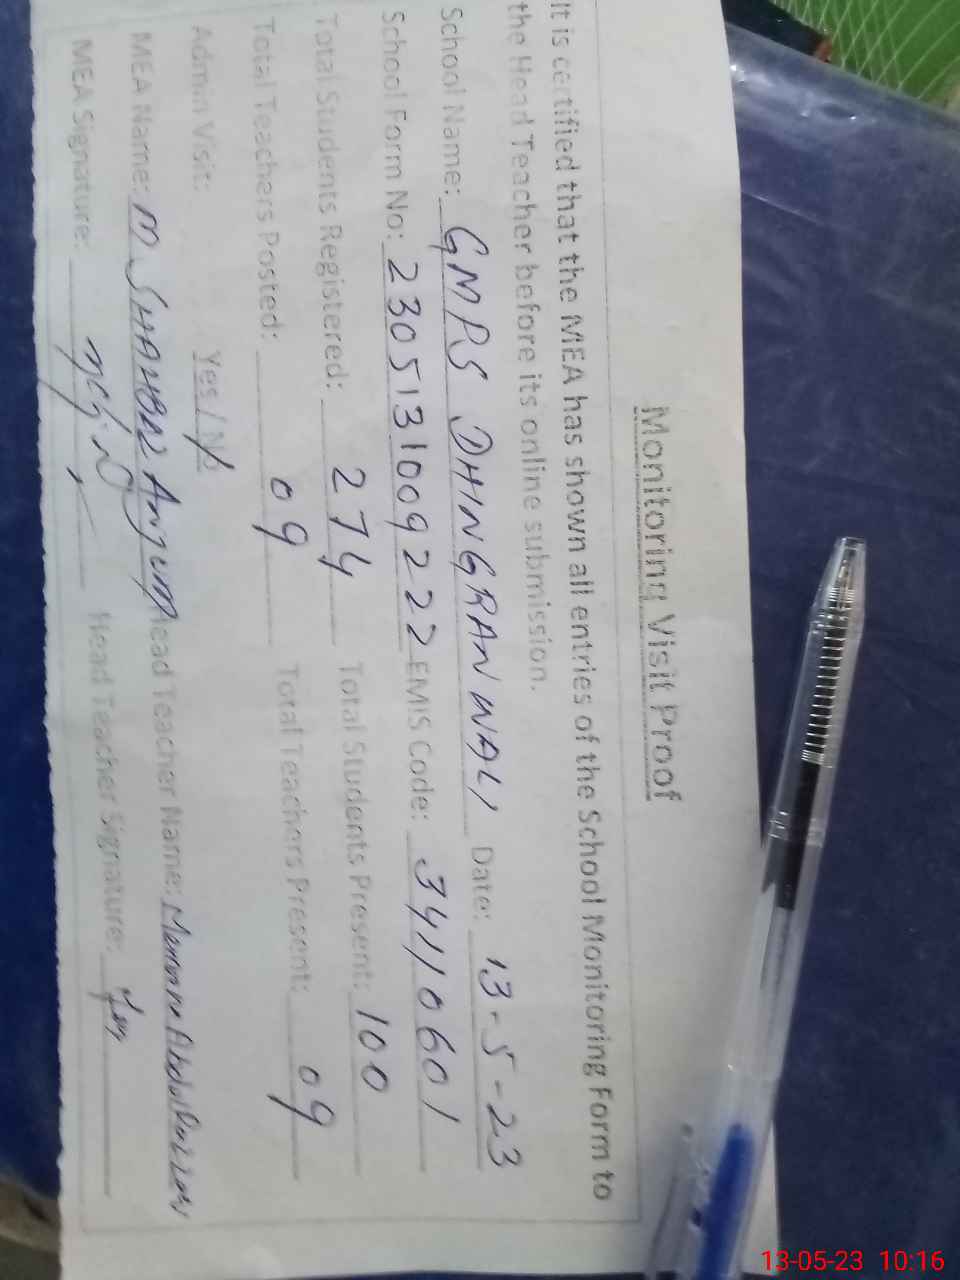 Monitoring Visit Proof
It is certified that the MEA has shown all entries of the School Monitoring Form to
the Head Teacher before its online submission.
School Name: GMPS DHINGRANWALI Date: 13-5-23
School Form No: 2305131009222 EMIS Code: 34110601
Total Students Registered: 274 Total Students Present: 100
Total Teachers Posted: 09 Total Teachers Present: 09
Admin Visit: Yes / No
MEA Name: M SHAHBAZ Anjum Head Teacher Name:
MEA Signature: Head Teacher Signature:
13-05-23 10:16